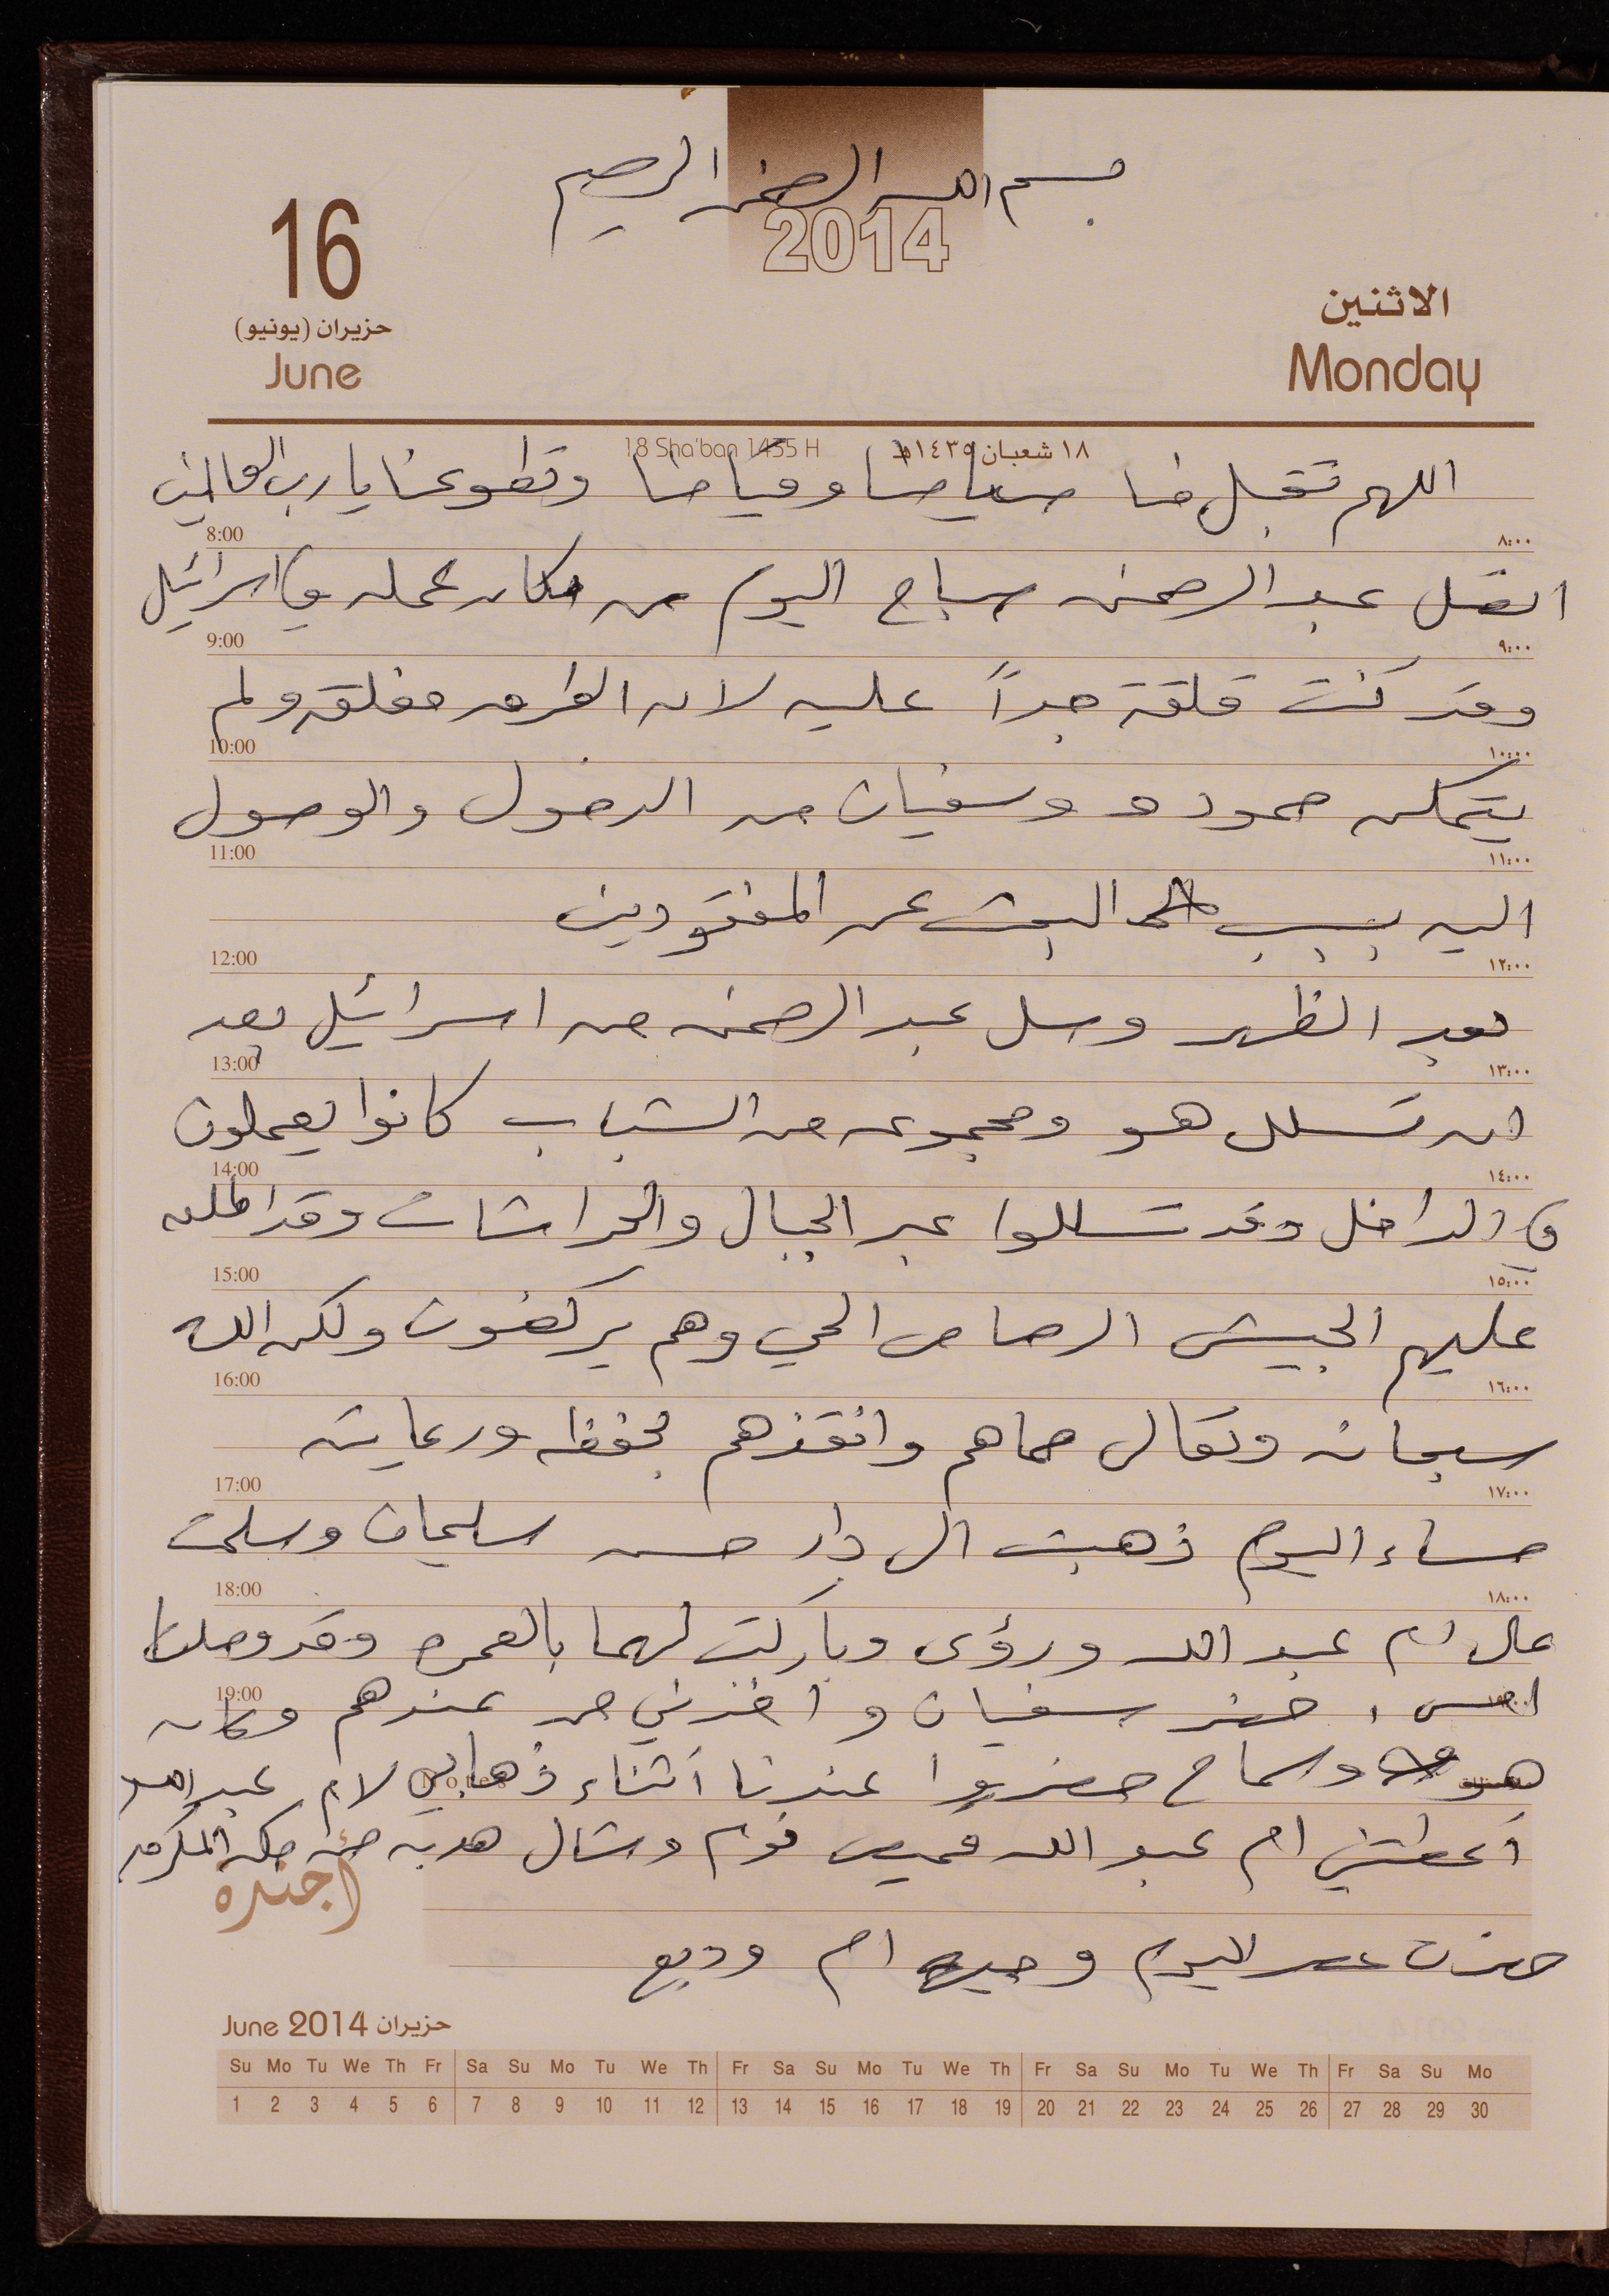 بسم الله الرحمن الرحيم
2014
16
حزيران (يونيو)
June
الاثنين
Monday
18 Sha'ban 1435 H
١٨ شعبان ١٤٣٥هـ
اللهم تقبل منا صيامنا وقيامنا وتطوعنا يا رب العالمين
8:00 ٨:٠٠
اتصل عبد الرحمن صباح اليوم من مكان عمله في اسرائيل
9:00 ٩:٠٠
وقد كنت قلقة جداً عليه لان الطرق مغلقه ولم
10:00 ١٠:٠٠
يتمكن حموده وسفيان من الدخول والوصول
11:00 ١١:٠٠
اليه بسبب البحث عن المفقودين
12:00 ١٢:٠٠
بعد الظهر وصل عبد الرحمن من اسرائيل بعد
13:00 ١٣:٠٠
ان تسلل هو ومجموعه من الشباب كانوا يعملون
14:00 ١٤:٠٠
في الداخل وقد تسللوا عبر الجبال والحراشات وقد اطلق
15:00 ١٥:٠٠
عليهم الجيش الرصاص الحي وهم يركضون ولكن الله
16:00 ١٦:٠٠
سبحانه وتعالى حماهم وانقذهم بحفظه ورعايته
17:00 ١٧:٠٠
مساء اليوم ذهبت الى دار حسن سليمان وسلمت
18:00 ١٨:٠٠
على ام عبد الله ورؤى وباركت لهما بالعمره وقد وصلتا
19:00
امس، حضر سفيان واخذني من عندهم وكان
هو وسماح حضروا عندنا أثناء ذهابي لام عبد الله
Notes
أعطتني ام عبد الله قميص نوم وشال هديه من مكه المكرمه
اجندة
حضرت عصر اليوم ام وديع
June 2014 حزيران
Su Mo Tu We Th Fr Sa Su Mo Tu We Th Fr Sa Su Mo Tu We Th Fr Sa Su Mo Tu We Th Fr Sa Su Mo
1 2 3 4 5 6 7 8 9 10 11 12 13 14 15 16 17 18 19 20 21 22 23 24 25 26 27 28 29 30